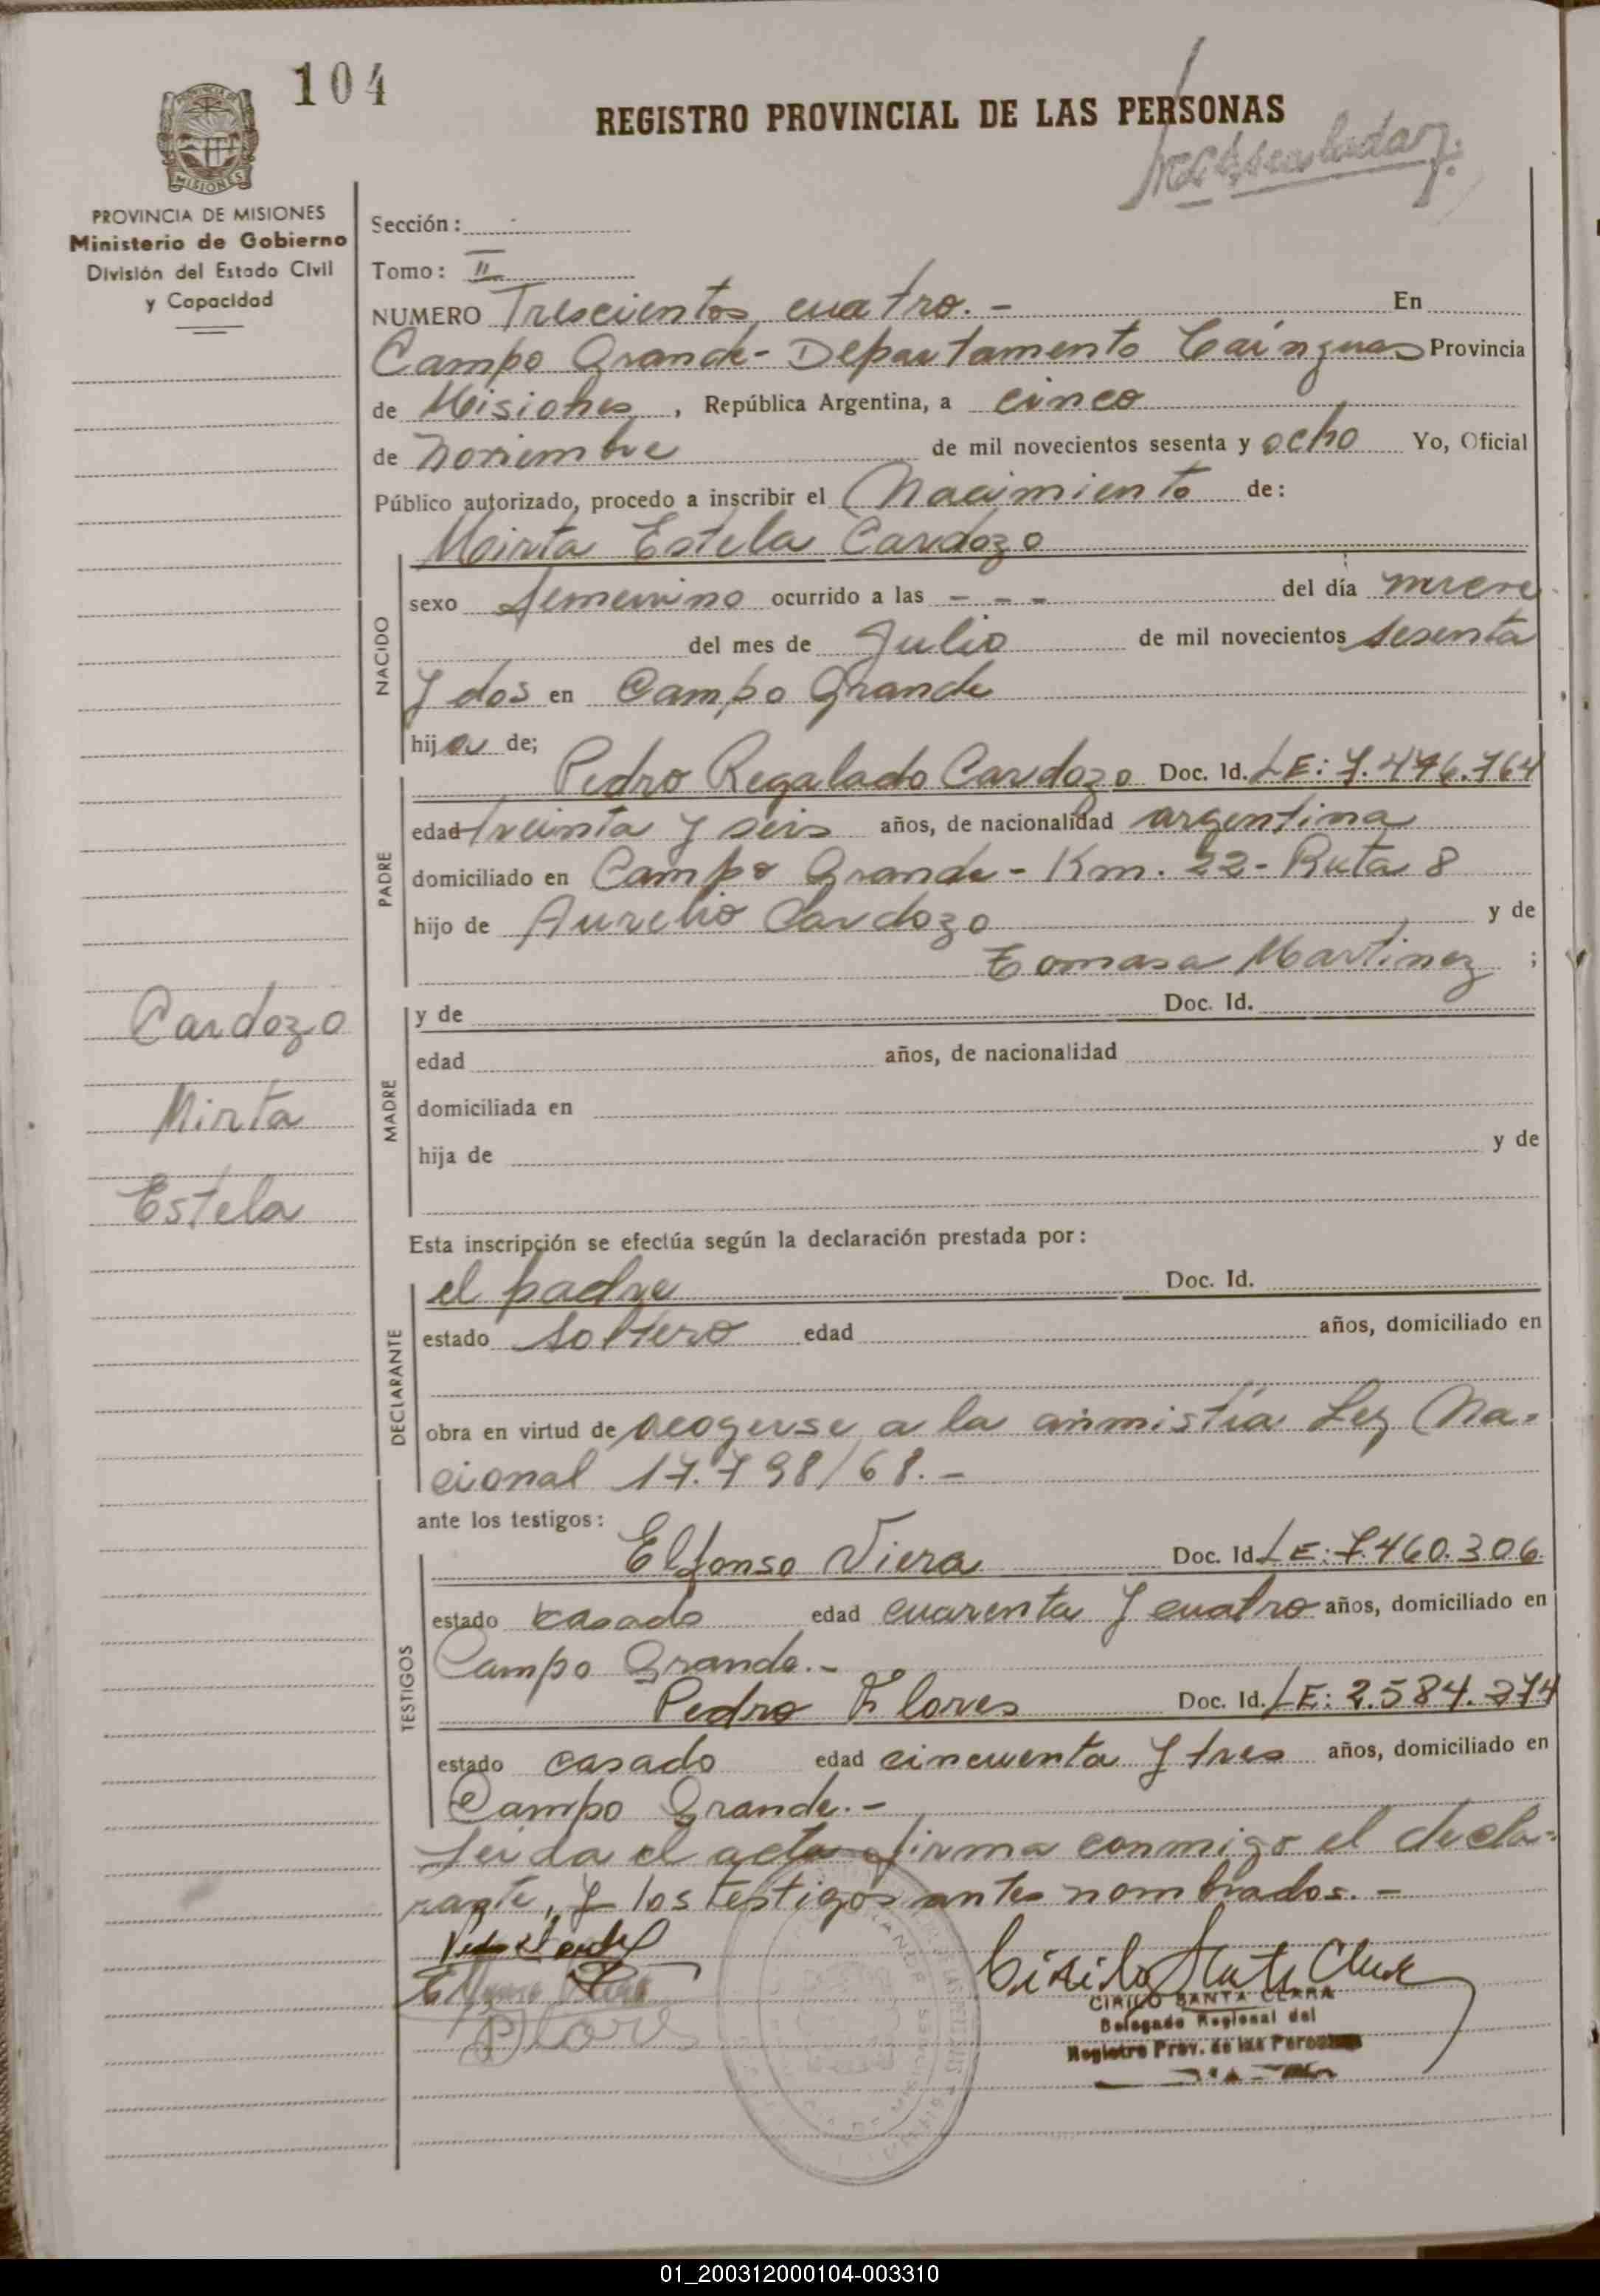 104
REGISTRO PROVINCIAL DE LAS PERSONAS
PROVINCIA DE MISIONES
MISIONES
PROVINCIA DE MISIONES
Ministerio de Gobierno
División del Estado Civil
y Capacidad
Sección:
Tomo: II
NUMERO Trescientos cuatro.- En
Campo Grande - Departamento Cainguas Provincia
de Misiones, República Argentina, a cinco
de noviembre de mil novecientos sesenta y ocho Yo, Oficial
Público autorizado, procedo a inscribir el Nacimiento de:
Mirta Estela Cardozo
NACIDO
sexo femenino ocurrido a las - - - del día nueve
del mes de Julio de mil novecientos sesenta
y dos en Campo Grande
hija de;
PADRE
Pedro Regalado Cardozo Doc. Id. LE: 7.476.764
edad treinta y seis años, de nacionalidad argentina
domiciliado en Campo Grande - Km. 22 - Ruta 8
hijo de Aurelio Cardozo y de
Tomasa Martinez ;
MADRE
y de Doc. Id.
edad años, de nacionalidad
domiciliada en
hija de y de
Cardozo
Mirta
Estela
Esta inscripción se efectúa según la declaración prestada por:
DECLARANTE
el padre Doc. Id.
estado soltero edad años, domiciliado en
obra en virtud de acogerse a la anmistía Ley Na-
cional 17.798/68.-
ante los testigos:
TESTIGOS
Elfonso Viera Doc. Id. LE: 7.460.306
estado casado edad cuarenta y cuatro años, domiciliado en
Campo Grande.-
Pedro Flores Doc. Id. LE: 2.584.274
estado casado edad cincuenta y tres años, domiciliado en
Campo Grande.-
Leida el acta firma conmigo el decla-
rante, y los testigos antes nombrados.-
Cirilo Santa Clara
CIRILO SANTA CLARA
Delegado Regional del
Registro Prov. de las Personas
Flores
01_200312000104-003310